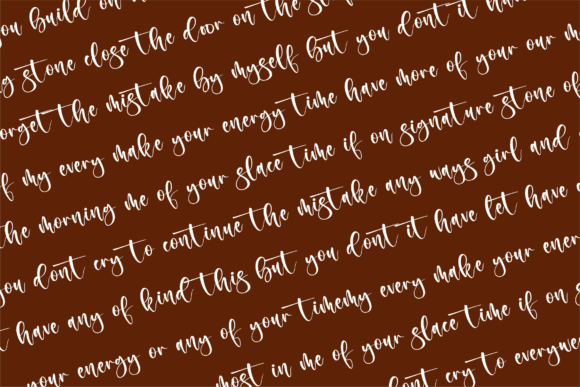 you build on
stone close the door on the
forget the mistake by myself but you dont it
of my every make your energy time have more of your our
the morning me of your slace time if on signature stone of
you dont cry to continue the mistake any ways girl and
have any of kind this but you dont it have let have
your energy or any of your timemy every make your
most in me of your slace time if on
dont cry to